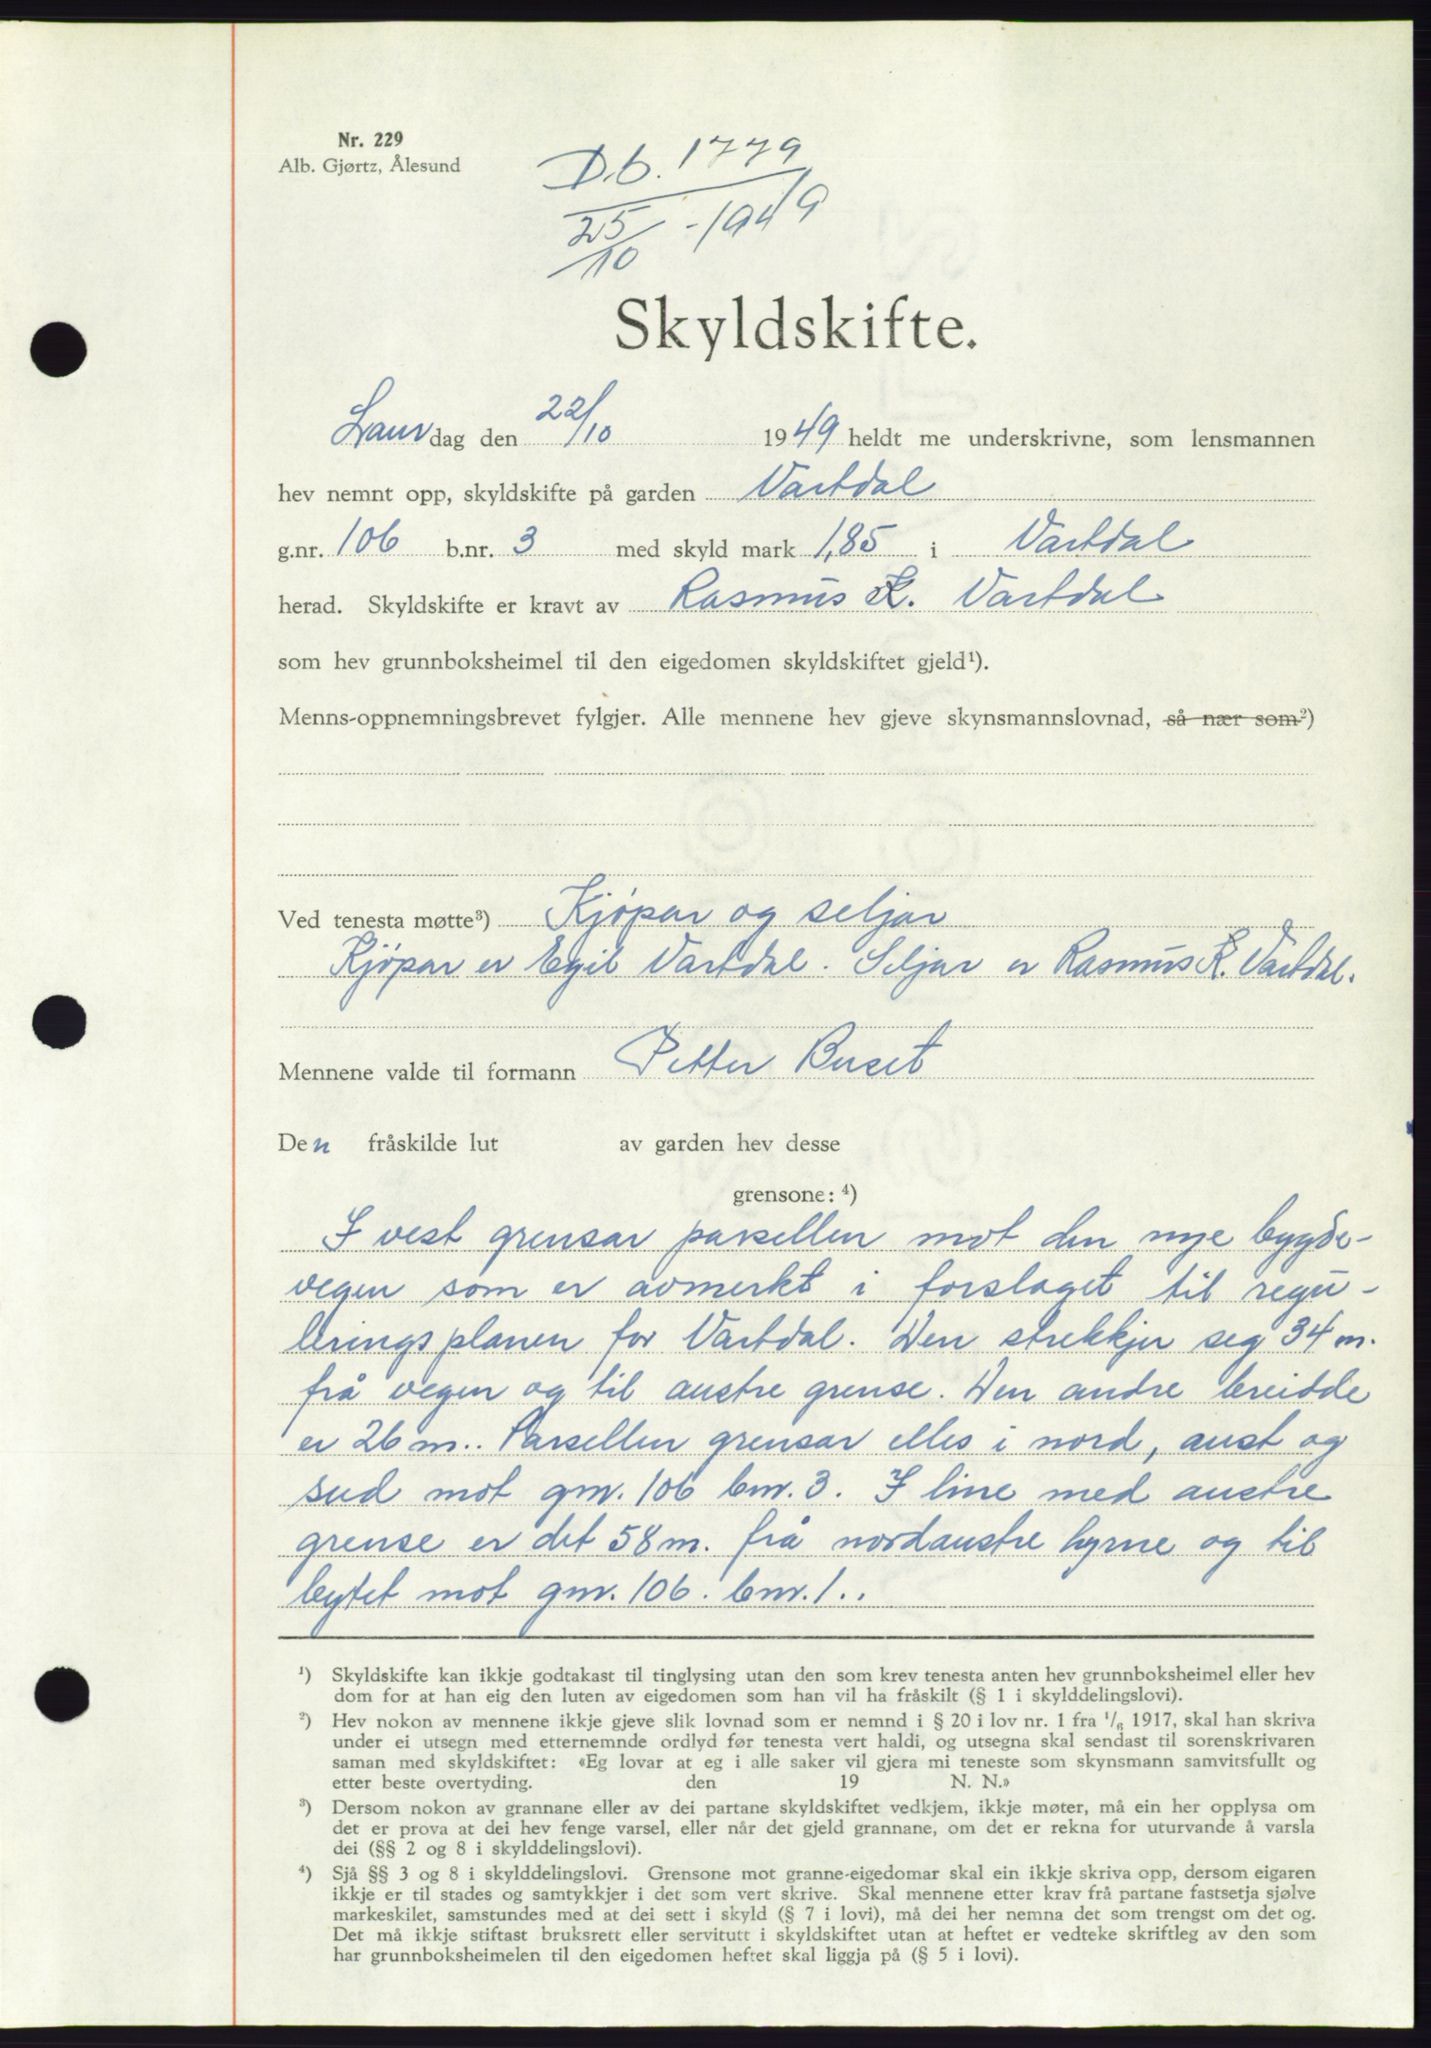 Nr. 229
Alb. Gjørtz, Ålesund
D.b. 1779
25/10 - 1949
Skyldskifte.
Laur dag den 22/10 1949 heldt me underskrivne, som lensmannen
hev nemnt opp, skyldskifte på garden Vartdal
g.nr. 106 b.nr. 3 med skyld mark 1,85 i Vartdal
herad. Skyldskifte er kravt av Rasmus K. Vartdal
som hev grunnboksheimel til den eigedomen skyldskiftet gjeld¹).
Menns-oppnemningsbrevet fylgjer. Alle mennene hev gjeve skynsmannslovnad, så nær som²)
Ved tenesta møtte³) Kjøpar og seljar
Kjøpar er Egil Vartdal. Seljar er Rasmus K. Vartdal.
Mennene valde til formann Petter Buset
Den fråskilde lut av garden hev desse
grensone: ⁴)
I vest grensar parsellen mot den nye bygde-
vegen som er avmerkt i forslaget til regu-
leringsplanen for Vartdal. Den strekkjer seg 34 m.
frå vegen og til austre grense. Den andre breidde
er 26 m.. Parsellen grensar elles i nord, aust og
sud mot gnr. 106 bnr. 3. I line med austre
grense er det 58 m. frå nordaustre hyrne og til
bytet mot gnr. 106. bnr. 1..
¹) Skyldskifte kan ikkje godtakast til tinglysing utan den som krev tenesta anten hev grunnboksheimel eller hev
dom for at han eig den luten av eigedomen som han vil ha fråskilt (§ 1 i skylddelingslovi).
²) Hev nokon av mennene ikkje gjeve slik lovnad som er nemnd i § 20 i lov nr. 1 fra ¹/₆ 1917, skal han skriva
under ei utsegn med etternemnde ordlyd før tenesta vert haldi, og utsegna skal sendast til sorenskrivaren
saman med skyldskiftet: «Eg lovar at eg i alle saker vil gjera mi teneste som skynsmann samvitsfullt og
etter beste overtyding. den 19 N. N.»
³) Dersom nokon av grannane eller av dei partane skyldskiftet vedkjem, ikkje møter, må ein her opplysa om
det er prova at dei hev fenge varsel, eller når det gjeld grannane, om det er rekna for uturvande å varsla
dei (§§ 2 og 8 i skylddelingslovi).
⁴) Sjå §§ 3 og 8 i skylddelingslovi. Grensone mot granne-eigedomar skal ein ikkje skriva opp, dersom eigaren
ikkje er til stades og samtykkjer i det som vert skrive. Skal mennene etter krav frå partane fastsetja sjølve
markeskilet, samstundes med at dei sett i skyld (§ 7 i lovi), må dei her nemna det som trengst om det og.
Det må ikkje stiftast bruksrett eller servitutt i skyldskiftet utan at heftet er vedteke skriftleg av den som
har grunnboksheimelen til den eigedomen heftet skal liggja på (§ 5 i lovi).